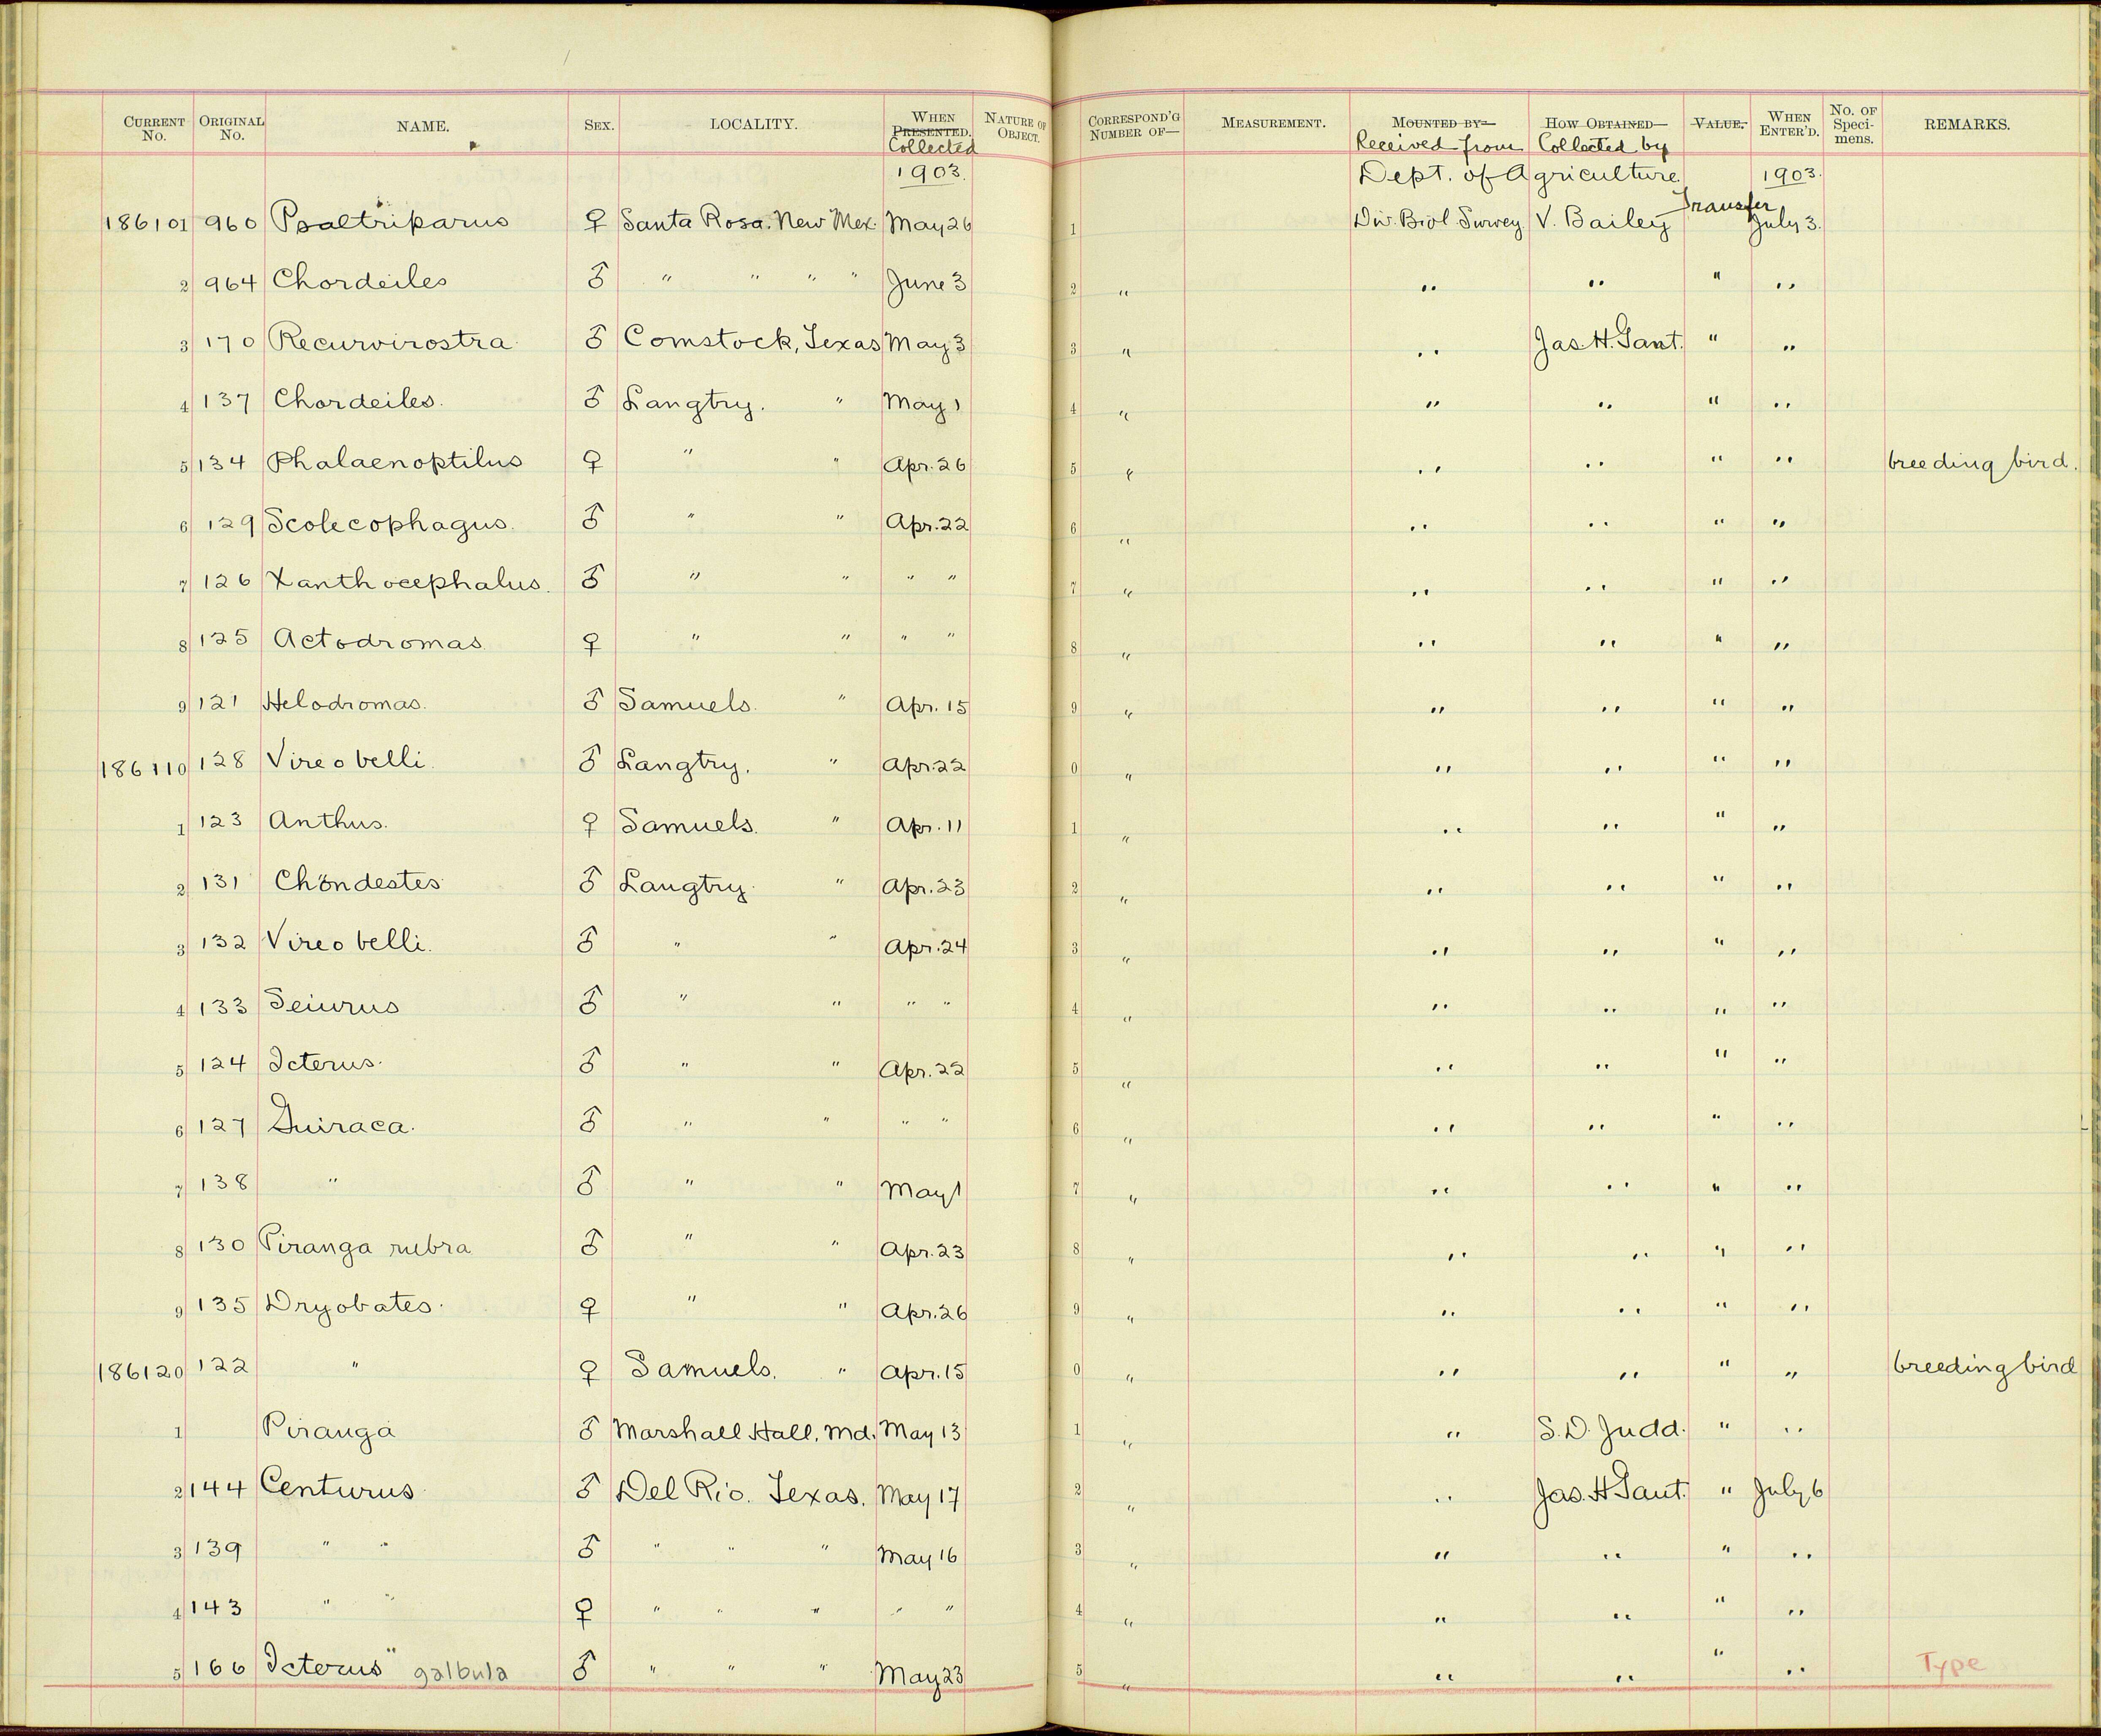 CURRENT No. ORIGINAL No. NAME. SEX. LOCALITY. WHEN PRESENTED. Collected NATURE OF OBJECT. CORRESPOND'G NUMBER OF— MEASUREMENT. MOUNTED BY— Received from HOW OBTAINED— Collected by VALUE. WHEN ENTER'D. No. OF Specimens. REMARKS.
1903. Dept. of Agriculture 1903.
186101 960 Psaltriparus ♀ Santa Rosa. New Mex. May 26 1 Div. Biol. Survey. V. Bailey Transfer July 3.
2 964 Chordeiles ♂ " " " " June 3 2 " " " " "
3 170 Recurvirostra ♂ Comstock, Texas May 3 3 " " Jas. H. Gant. " "
4 137 Chordeiles. ♂ Langtry. " May 1 4 " " " " "
5 134 Phalaenoptilus ♀ " " Apr. 26 5 " " " " " breeding bird.
6 129 Scolecophagus. ♂ " " Apr. 22 6 " " " " "
7 126 Xanthocephalus. ♂ " " " " 7 " " " " "
8 125 Actodromas ♀ " " " " 8 " " " " "
9 121 Helodromas. ♂ Samuels. " Apr. 15 9 " " " " "
186110 128 Vireo belli. ♂ Langtry. " Apr. 22 0 " " " " "
1 123 Anthus. ♀ Samuels. " Apr. 11 1 " " " " "
2 131 Chondestes ♂ Langtry. " Apr. 23 2 " " " " "
3 132 Vireo belli. ♂ " " Apr. 24 3 " " " " "
4 133 Seiurus ♂ " " " " 4 " " " " "
5 124 Icterus. ♂ " " Apr. 22 5 " " " " "
6 127 Guiraca. ♂ " " " " 6 " " " " "
7 138 " ♂ " " May 1 7 " " " " "
8 130 Piranga rubra ♂ " " Apr. 23 8 " " " " "
9 135 Dryobates. ♀ " " Apr. 26 9 " " " " "
186120 122 " ♀ Samuels. " Apr. 15 0 " " " " " breeding bird
1 Piranga ♂ Marshall Hall, Md. May 13 1 " " S. D. Judd. " "
2 144 Centurus ♂ Del Rio. Texas. May 17 2 " " Jas. H Gant. " July 6
3 139 " " ♂ " " " May 16 3 " " " " "
4 143 " " ♀ " " " " " 4 " " " " "
5 166 Icterus " galbula ♂ " " " May 23 5 " " " " " Type